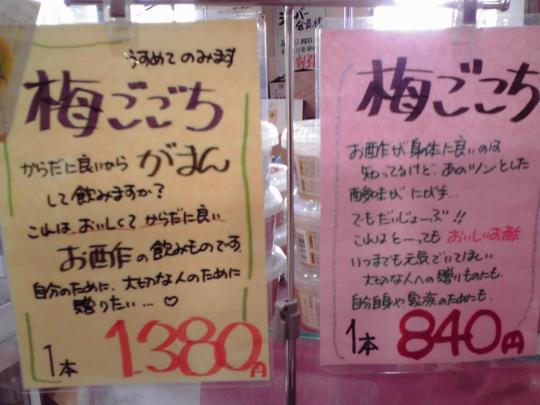 うすめてのみます
梅ごごち
からだに良いから がまん
して飲みますか?
これは、おいしくて からだに良い
お酢の飲みものです。
自分のために、大切な人のために
贈りたい…♡
1本 1380円
梅ごこち
お酢が身体に良いのは
知ってるけど、あのツンとした
酸味がにが手…
でもだいじょーぶ!!
これはとーっても おいしいお酢
いつまでも元気でいてほしい
大切な人への贈りものにも、
自分自身や家族のためにも、
1本 840円